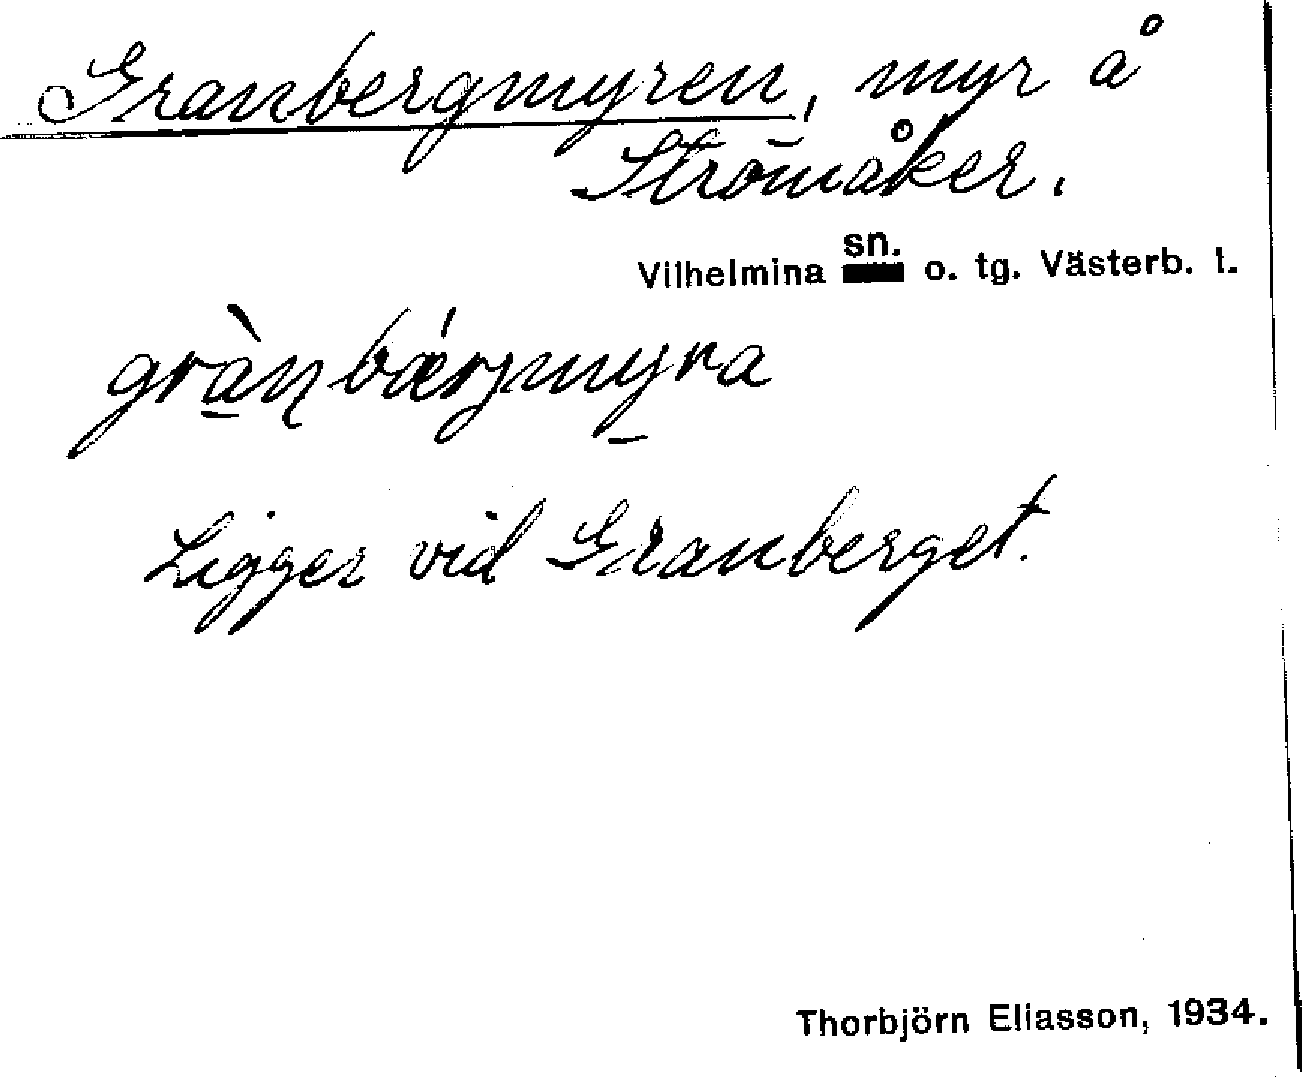 Granbergmyren, myr å
Strömåker.
Vilhelmina sn. o. tg. Västerb. l.
gràn̨bǽrjmyra
Ligger vid Granberget.
Thorbjörn Eliasson, 1934.